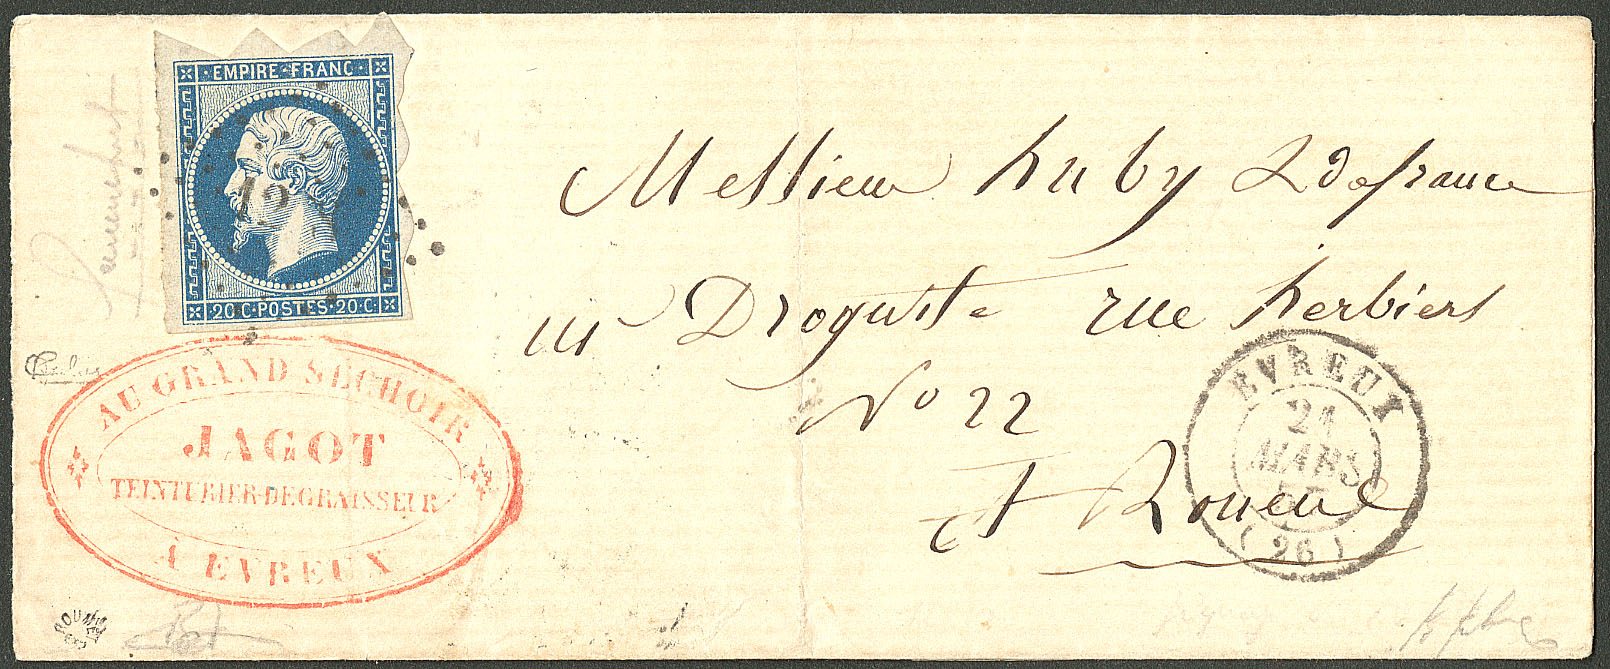 EMPIRE·FRANC·
12
20·C·POSTES·20·C·
Messieur huby Ldefrance
Droguiste rue herbiers
No 22
at Roueue
EVREUX
21
MARS
57
(26)
AU GRAND SÉCHOIR
JAGOT
TEINTURIER-DEGRAISSEUR
À EVREUX
ROUMET